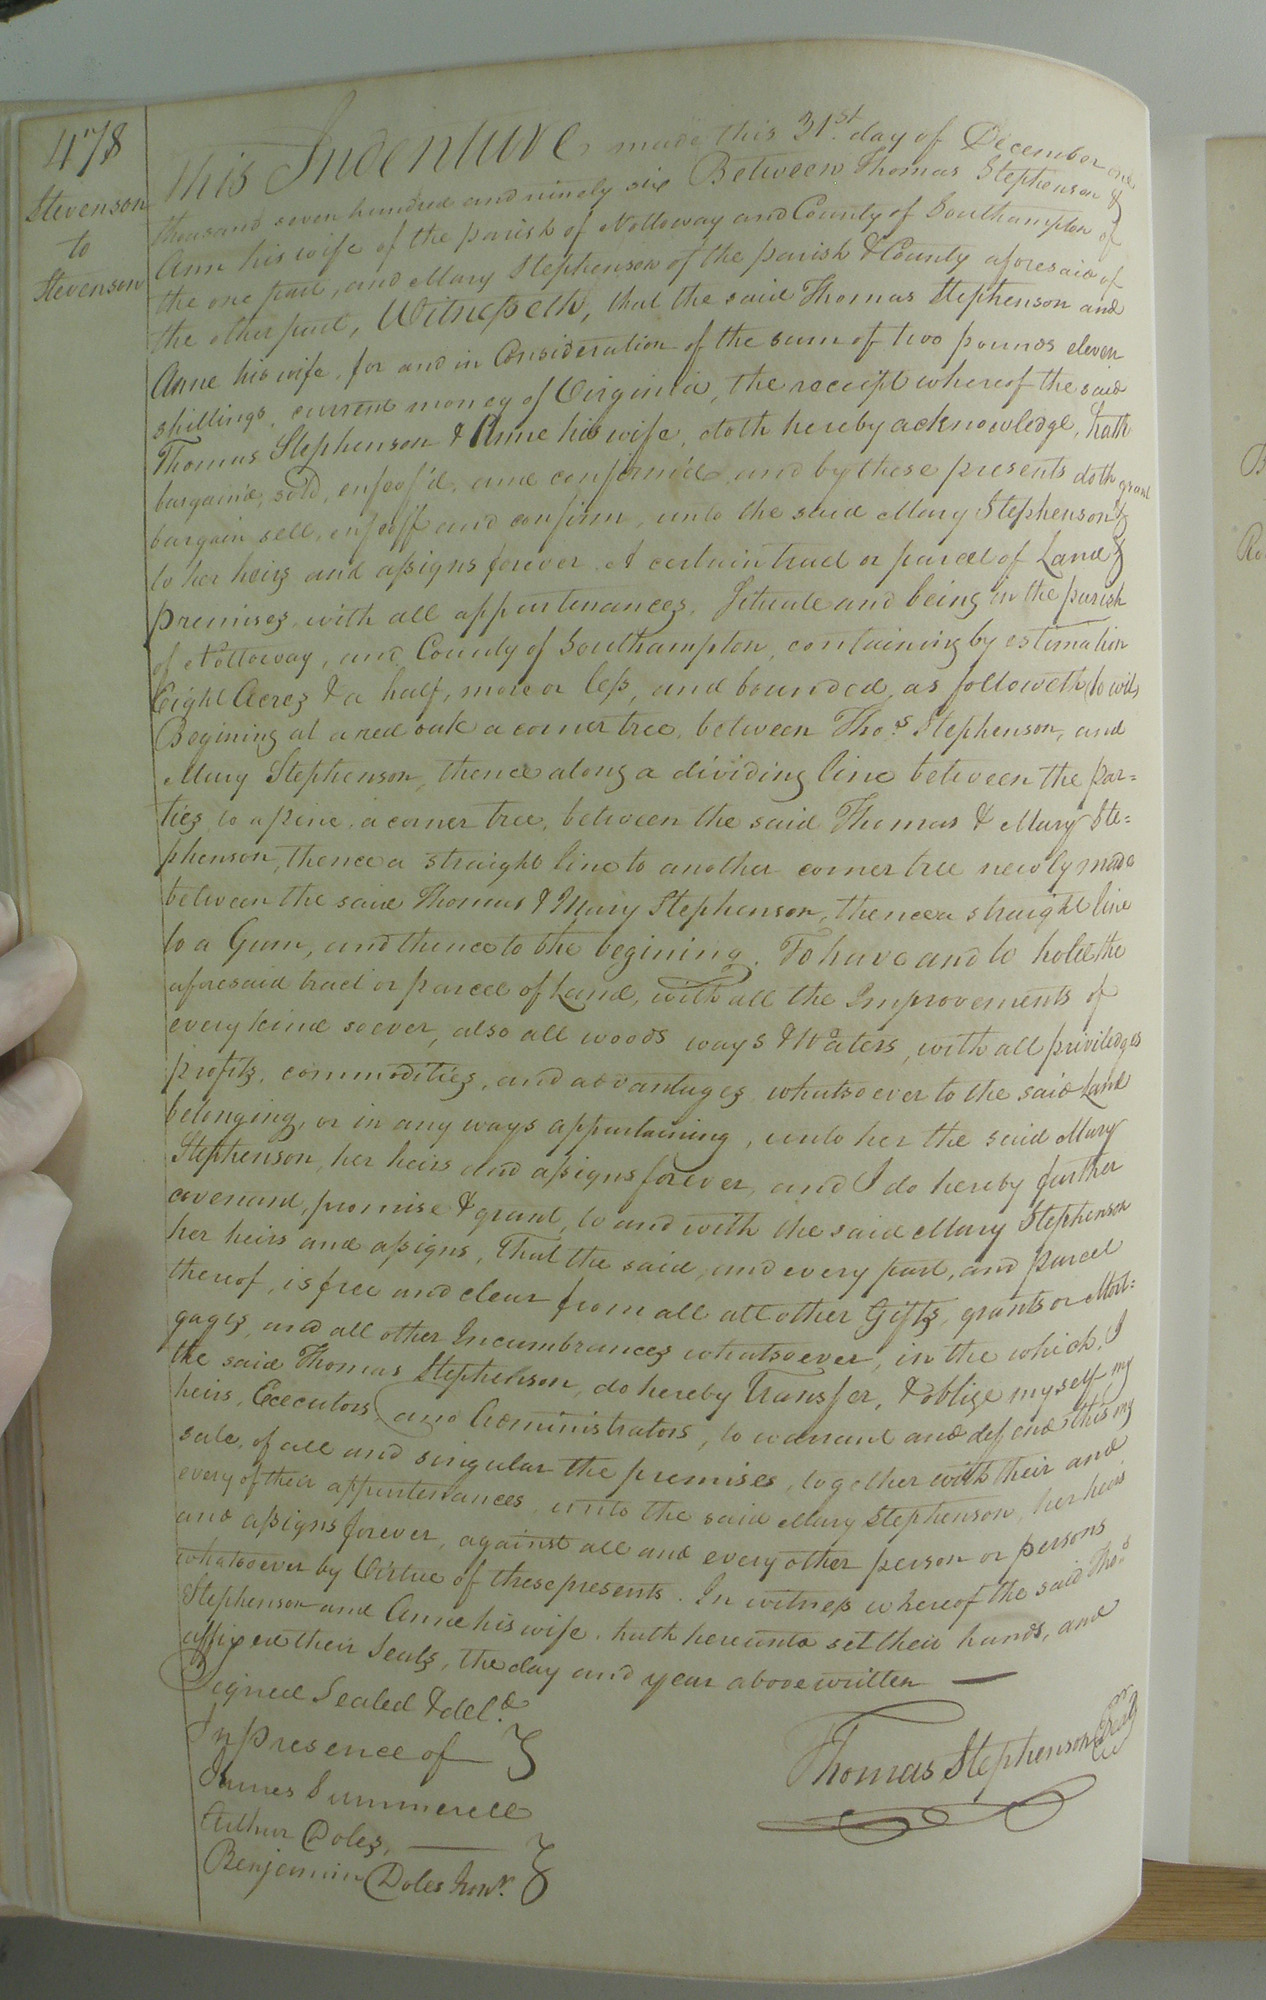 478
Stevenson
to
Stevenson
This Indenture made this 31st. day of December one
thousand seven hundred and ninety six Between Thomas Stephenson &
Ann his wife of the parish of Nottoway and County of Southampton of
the one part, and Mary Stephenson of the parish & County aforesaid of
the other part, Witnesseth, that the said Thomas Stephenson and
Anne his wife, for and in Consideration of the sum of two pounds eleven
shillings, current money of Virginia, the receipt whereof the said
Thomas Stephenson & Anne his wife, doth hereby acknowledge, hath
bargain'd, sold, enfeof'd, and confirm'd, and by these presents doth grant
bargain sell, enfeoff and confirm, unto the said Mary Stephenson &
to her heirs and assigns forever. A certain tract or parcel of Land &
premises, with all appurtenances, Situate and being in the parish
of Nottoway, and County of Southampton, containing by estimation
Eight Acres & a half, more or less, and bounded, as followeth (to wit)
Begining at a red oak a corner tree, between Thos. Stephenson, and
Mary Stephenson, thence along a dividing line between the par=
ties to a pine, a corner tree, between the said Thomas & Mary Ste=
phenson, thence a straight line to another corner tree newly made
between the said Thomas & Mary Stephenson, thence a straight line
to a Gum, and thence to the begining. To have and to hold the
aforesaid tract or parcel of Land, with all the Improvements of
every kind soever, also all woods ways & Waters, with all priviledges
profits, commodities, and advantages whatsoever to the said Land
belonging, or in any ways appurtaining, unto her the said Mary
Stephenson, her heirs and assigns forever, and I do hereby further
covenant, promise & grant, to and with the said Mary Stephenson
her heirs and assigns, That the said, and every part, and parcel
thereof, is free and clear from all all other Gifts, grants or Mort=
gages, and all other Incumbrances whatsoever, in the which, I
the said Thomas Stephenson, do hereby Transfer, & oblige myself my
heirs, Executors, and Administrators, to warrant and defend this my
sale, of all and singular the premises, together with their and
every of their appurtenances unto the said Mary Stephenson, her heirs
and assigns forever, against all and every other person or persons
whatsoever by Virtue of these presents. In witness whereof the said Thos.
Stephenson and Anne his wife, hath hereunto set their hands, and
affixed their Seals, the day and year above written
Signed Sealed & deld.
In presence of
James Summerell
Arthur Doles,
Benjamin Doles Junr.
Thomas Stephenson